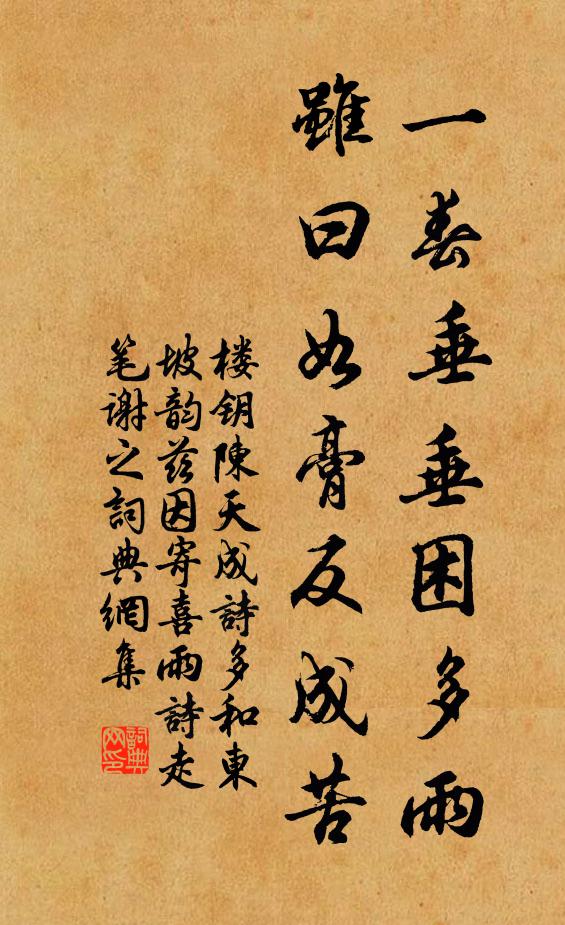 一春垂垂困多雨
雖曰如膏反成苦
楼钥陳天成詩多和東
坡韵茲因寄喜雨詩走
笔谢之詞典網集
詞典
网印